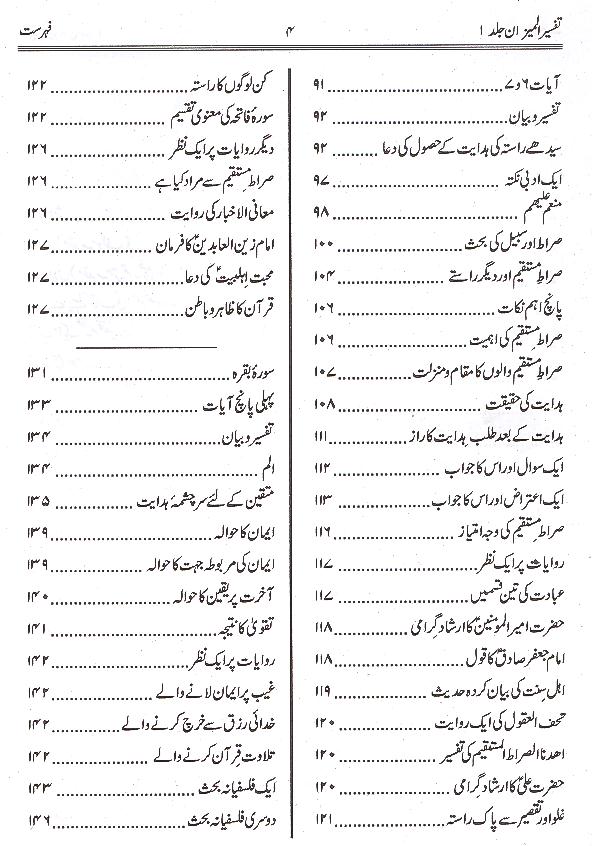 تفسیر المیزان جلد ۱
۴
فہرست
آیات ۶ و ۷ ........ ۹۱
تفسیر و بیان ........ ۹۲
سیدھے راستہ کی ہدایت کے حصول کی دعا ........ ۹۲
ایک ادبی نکتہ ........ ۹۷
منعم علیھم ........ ۹۸
صراط اور سبیل کی بحث ........ ۱۰۰
صراطِ مستقیم اور دیگر راستے ........ ۱۰۴
پانچ اہم نکات ........ ۱۰۶
صراطِ مستقیم کی اہمیت ........ ۱۰۶
صراطِ مستقیم والوں کا مقام و منزلت ........ ۱۰۷
ہدایت کی حقیقت ........ ۱۰۸
ہدایت کے بعد طلب ہدایت کا راز ........ ۱۱۱
ایک سوال اور اس کا جواب ........ ۱۱۲
ایک اعتراض اور اس کا جواب ........ ۱۱۳
صراطِ مستقیم کی وجہ امتیاز ........ ۱۱۶
روایات پر ایک نظر ........ ۱۱۷
عبادت کی تین قسمیں ........ ۱۱۷
حضرت امیر المومنینؑ کا ارشاد گرامی ........ ۱۱۸
امام جعفر صادقؑ کا قول ........ ۱۱۸
اھل سنت کی بیان کردہ حدیث ........ ۱۱۹
تحف العقول کی ایک روایت ........ ۱۲۰
اھدنا الصراط المستقیم کی تفسیر ........ ۱۲۰
حضرت علیؑ کا ارشاد گرامی ........ ۱۲۰
غلو اور تقصیر سے پاک راستہ ........ ۱۲۱
کن لوگوں کا راستہ ........ ۱۲۲
سورۂ فاتحہ کی معنوی تقسیم ........ ۱۲۲
دیگر روایات پر ایک نظر ........ ۱۲۶
صراطِ مستقیم سے مراد کیا ہے ........ ۱۲۶
معانی الاخبار کی روایت ........ ۱۲۶
امام زین العابدینؑ کا فرمان ........ ۱۲۷
محبت اہلبیتؑ کی دعا ........ ۱۲۷
قرآن کا ظاہر و باطن ........ ۱۲۷
سورۂ بقرہ ........ ۱۳۱
پہلی پانچ آیات ........ ۱۳۳
تفسیر و بیان ........ ۱۳۴
الم ........ ۱۳۴
متقین کے لئے سرچشمۂ ہدایت ........ ۱۳۵
ایمان کا حوالہ ........ ۱۳۹
ایمان کی مربوطہ جہت کا حوالہ ........ ۱۳۹
آخرت پر یقین کا حوالہ ........ ۱۴۰
تقویٰ کا نتیجہ ........ ۱۴۱
روایات پر ایک نظر ........ ۱۴۲
غیب پر ایمان لانے والے ........ ۱۴۲
خدائی رزق سے خرچ کرنے والے ........ ۱۴۲
تلاوتِ قرآن کرنے والے ........ ۱۴۲
ایک فلسفیانہ بحث ........ ۱۴۳
دوسری فلسفیانہ بحث ........ ۱۴۶